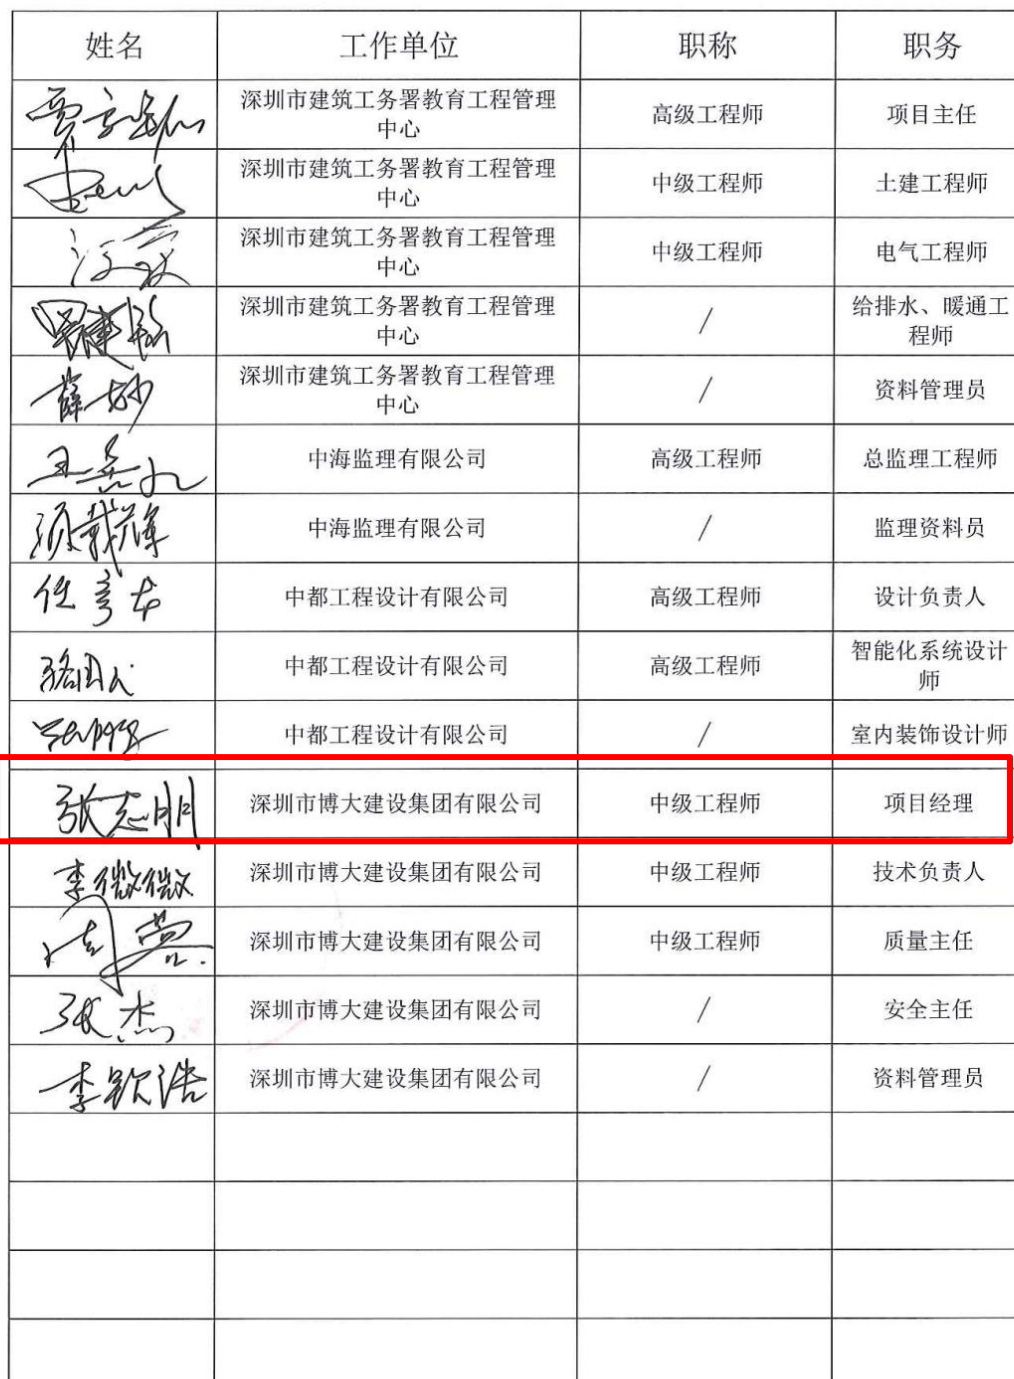 姓名 工作单位 职称 职务
深圳市建筑工务署教育工程管理
中心 高级工程师 项目主任
深圳市建筑工务署教育工程管理
中心 中级工程师 土建工程师
深圳市建筑工务署教育工程管理
中心 中级工程师 电气工程师
深圳市建筑工务署教育工程管理 给排水、暖通工
中心 / 程师
薛妙 深圳市建筑工务署教育工程管理
中心 / 资料管理员
中海监理有限公司 高级工程师 总监理工程师
中海监理有限公司 / 监理资料员
中都工程设计有限公司 高级工程师 设计负责人
中都工程设计有限公司 高级工程师 智能化系统设计
师
中都工程设计有限公司 / 室内装饰设计师
张志明 深圳市博大建设集团有限公司 中级工程师 项目经理
李微微 深圳市博大建设集团有限公司 中级工程师 技术负责人
深圳市博大建设集团有限公司 中级工程师 质量主任
张杰 深圳市博大建设集团有限公司 / 安全主任
李钦浩 深圳市博大建设集团有限公司 / 资料管理员